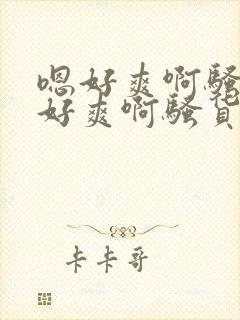 嗯好爽啊骚
好爽啊骚货
卡卡哥